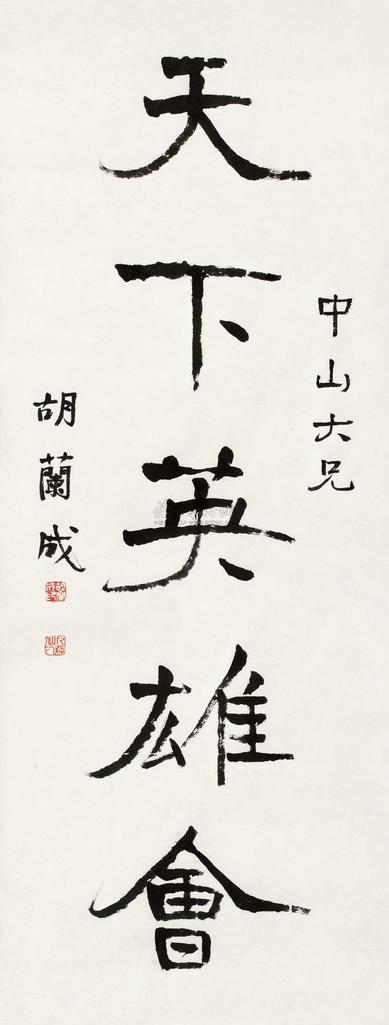 中山大兄
天下英雄會
胡蘭成